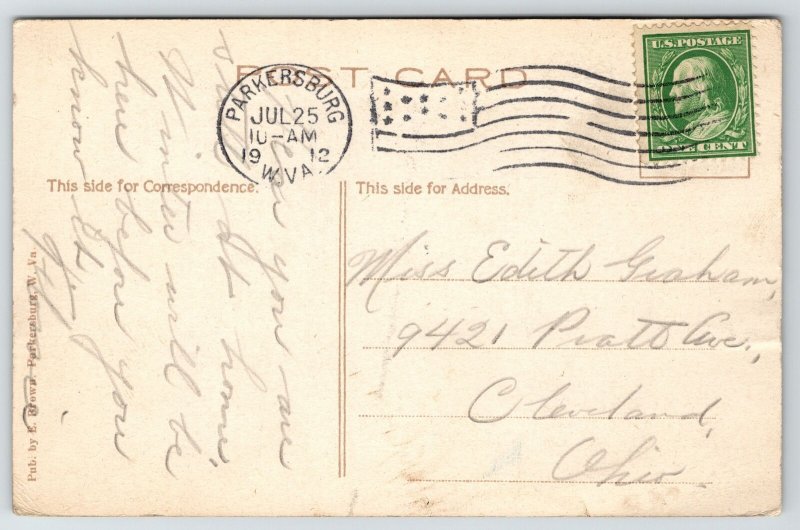 POST CARD
PARKERSBURG
JUL 25
10-AM
19 12
W. VA.
U.S. POSTAGE
ONE CENT
This side for Correspondence.
This side for Address.
Miss Edith Graham,
9421 Pratt Ave.,
Cleveland,
Ohio.
you are
still at home
Winter will be
here before you
know it.
Pub. by E. Brown, Parkersburg, W. Va.